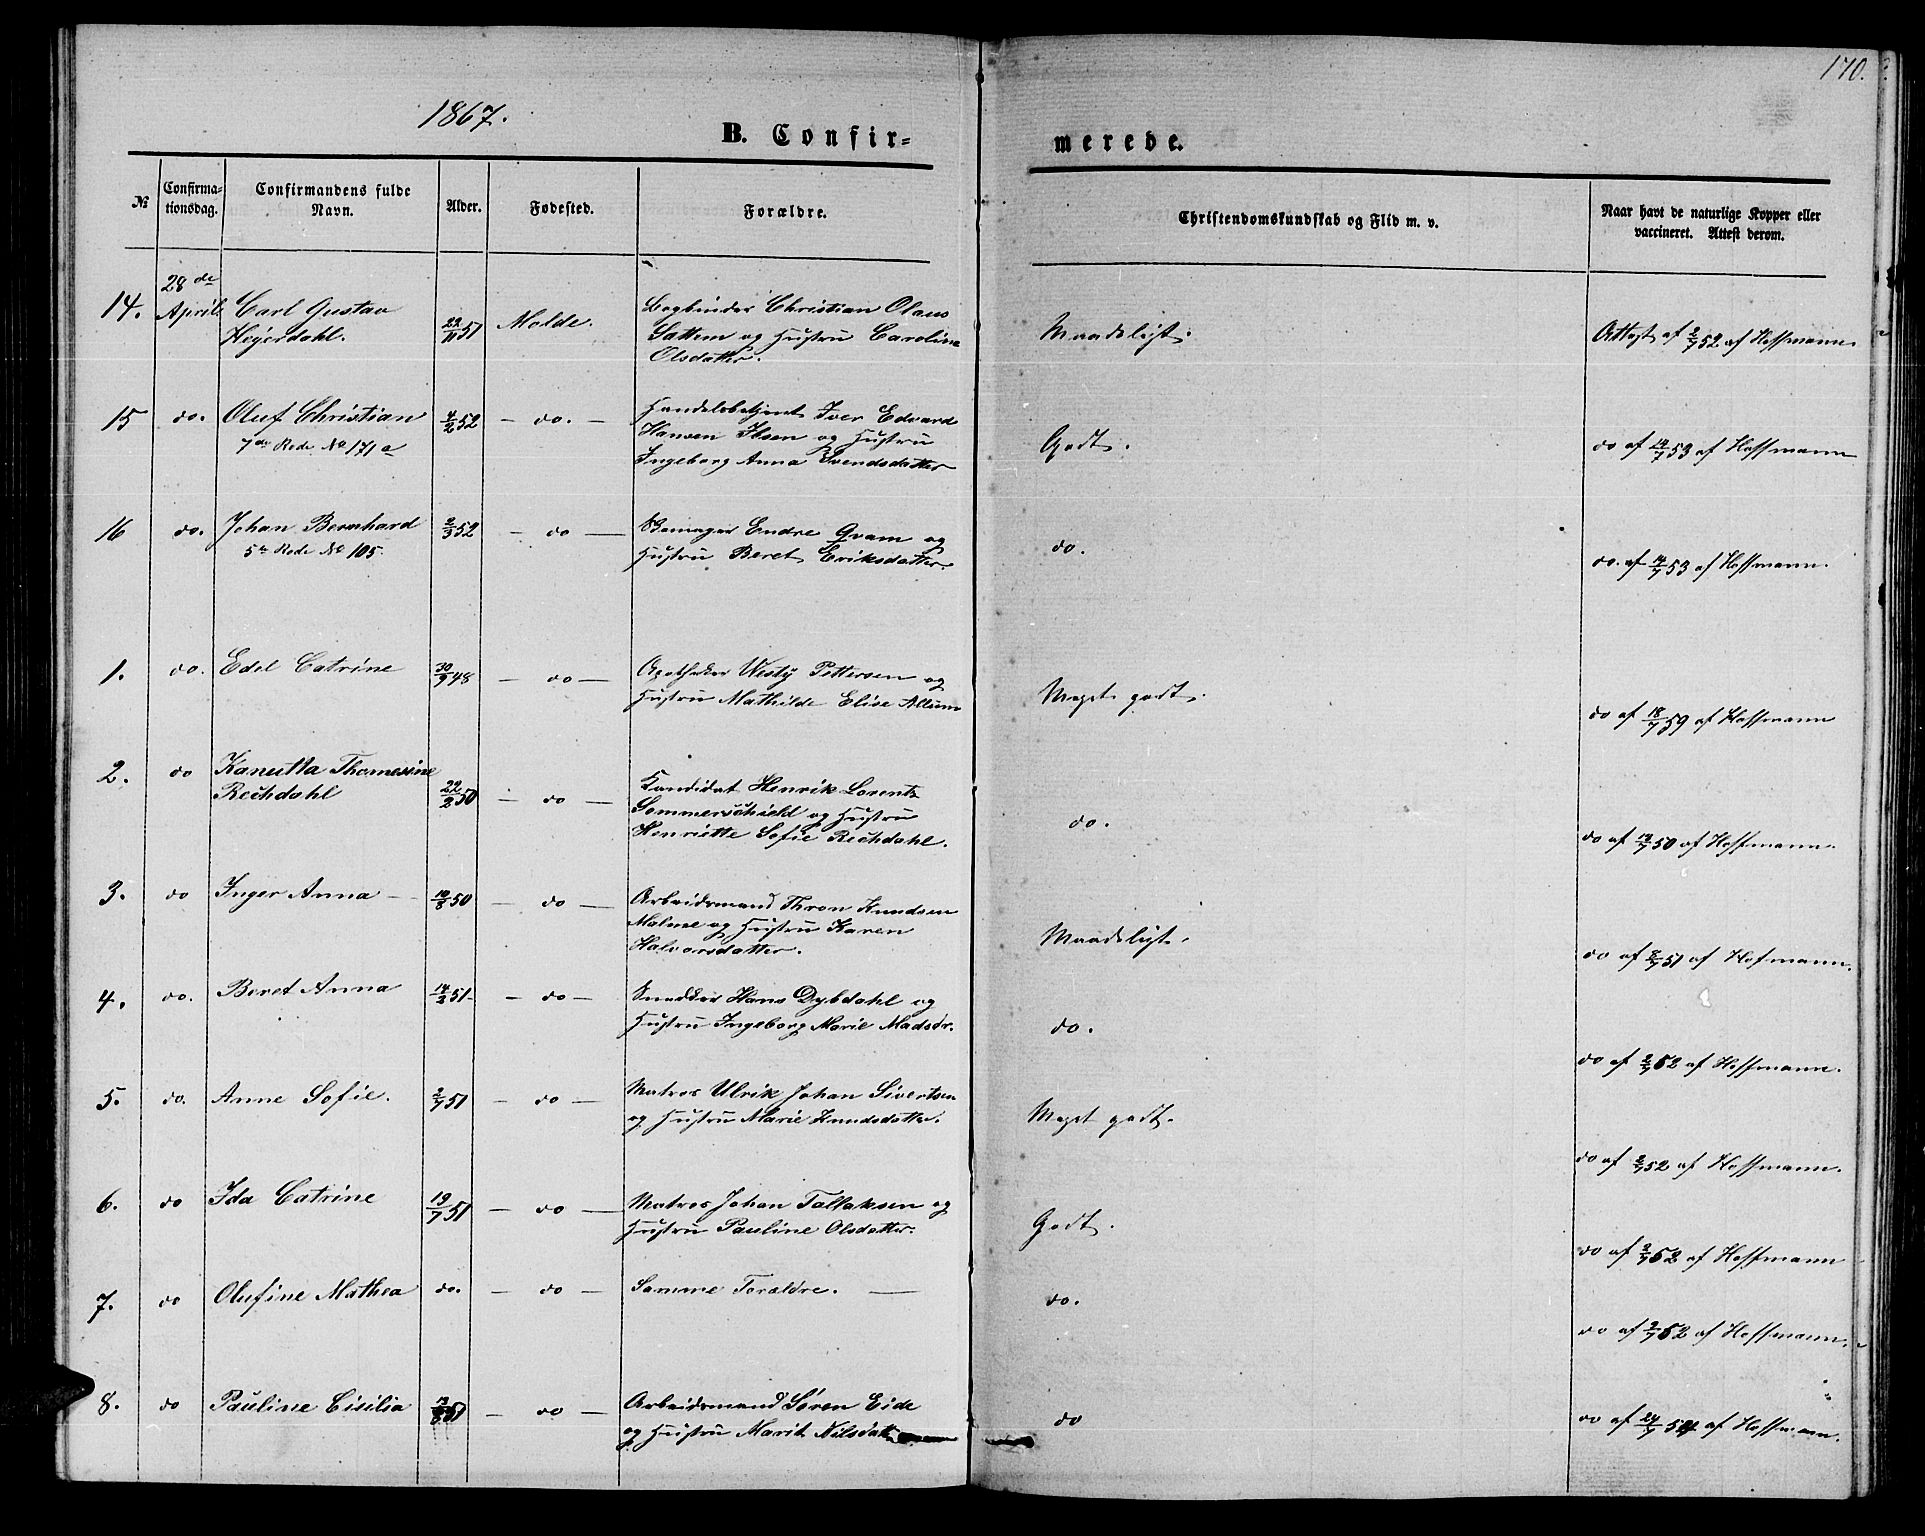 170.
1867.
B. Confir=
merede.
№
Confirma-
tionsdag.
Confirmandens fulde
Navn.
Alder.
Fødested.
Forældre.
Christendomskundskab og Flid m. v.
Naar havt de naturlige Kopper eller
vaccineret. Attest derom.
14. 28de April Carl Gustav
Heyerdahl. 22/11 51 Molde. Bogbinder Christian Olaus
Sattem og Hustru Caroline
Olsdatter. Maadeligt. Attest af 2/7 52 af Hoffmann.
15 do. Oluf Christian 4/2 52 – do. – Handelsbetjent Iver Edvard
7de Rode No 171a Hansen Ilsen og Hustru
Ingeborg Anna Svendsdatter Godt. do af 14/7 53 af Hoffmann
16 do. Johan Bernhard 2/3 52 – do – Endre Qvam og
5te Rode No 105. Hustru Beret Eriksdatter. do. do. af 14/7 53 af Hoffmann.
1. do. Edel Catrine 30/9 48 – do – Apotheker Westy Pettersen og
Hustru Mathilde Elise Allum Meget godt. do af 18/7 59 af Hoffmann
2. do Kanutta Thomesine
Rechdahl 22/2 50 – do – Kandidat Henrik Lorentz
Sommerschield og Hustru
Henriette Sofie Rechdahl. do. do af 14/7 50 af Hoffmann.
3. do Inger Anna – 10/8 50 – do – Arbeidsmand Thron Knudsen
Malme og Hustru Karen
Halvorsdatter. Maadeligt. do af 8/7 51 af Hofmann.
4. do. Beret Anna 14/2 51 – do – Snedker Hans Dybdahl og
Hustru Ingeborg Marie Madsdr. do. do af 2/7 52 af Hoffmann.
5. do. Anne Sofie. 2/7 51 – do – Matros Ulrik Johan Sivertsen
og Hustru Marie Knudsdatter. Meget godt. do af 2/7 52 af Hoffmann.
6. do Ida Catrine 19/7 51 – do – Matros Johan Tallaksen og
Hustru Pauline Olsdatter. Godt. do af 2/7 52 af Hoffmann
7. do Olufine Mathea do. – do – Samme Forældre. – do. do af 2/7 52 af Hoffmann.
8. do Pauline Cisilia 51 – do – Arbeidsmand Søren Eide
og Hustru Marit Nilsdatt do do af 24/7 54 af Hoffmann.